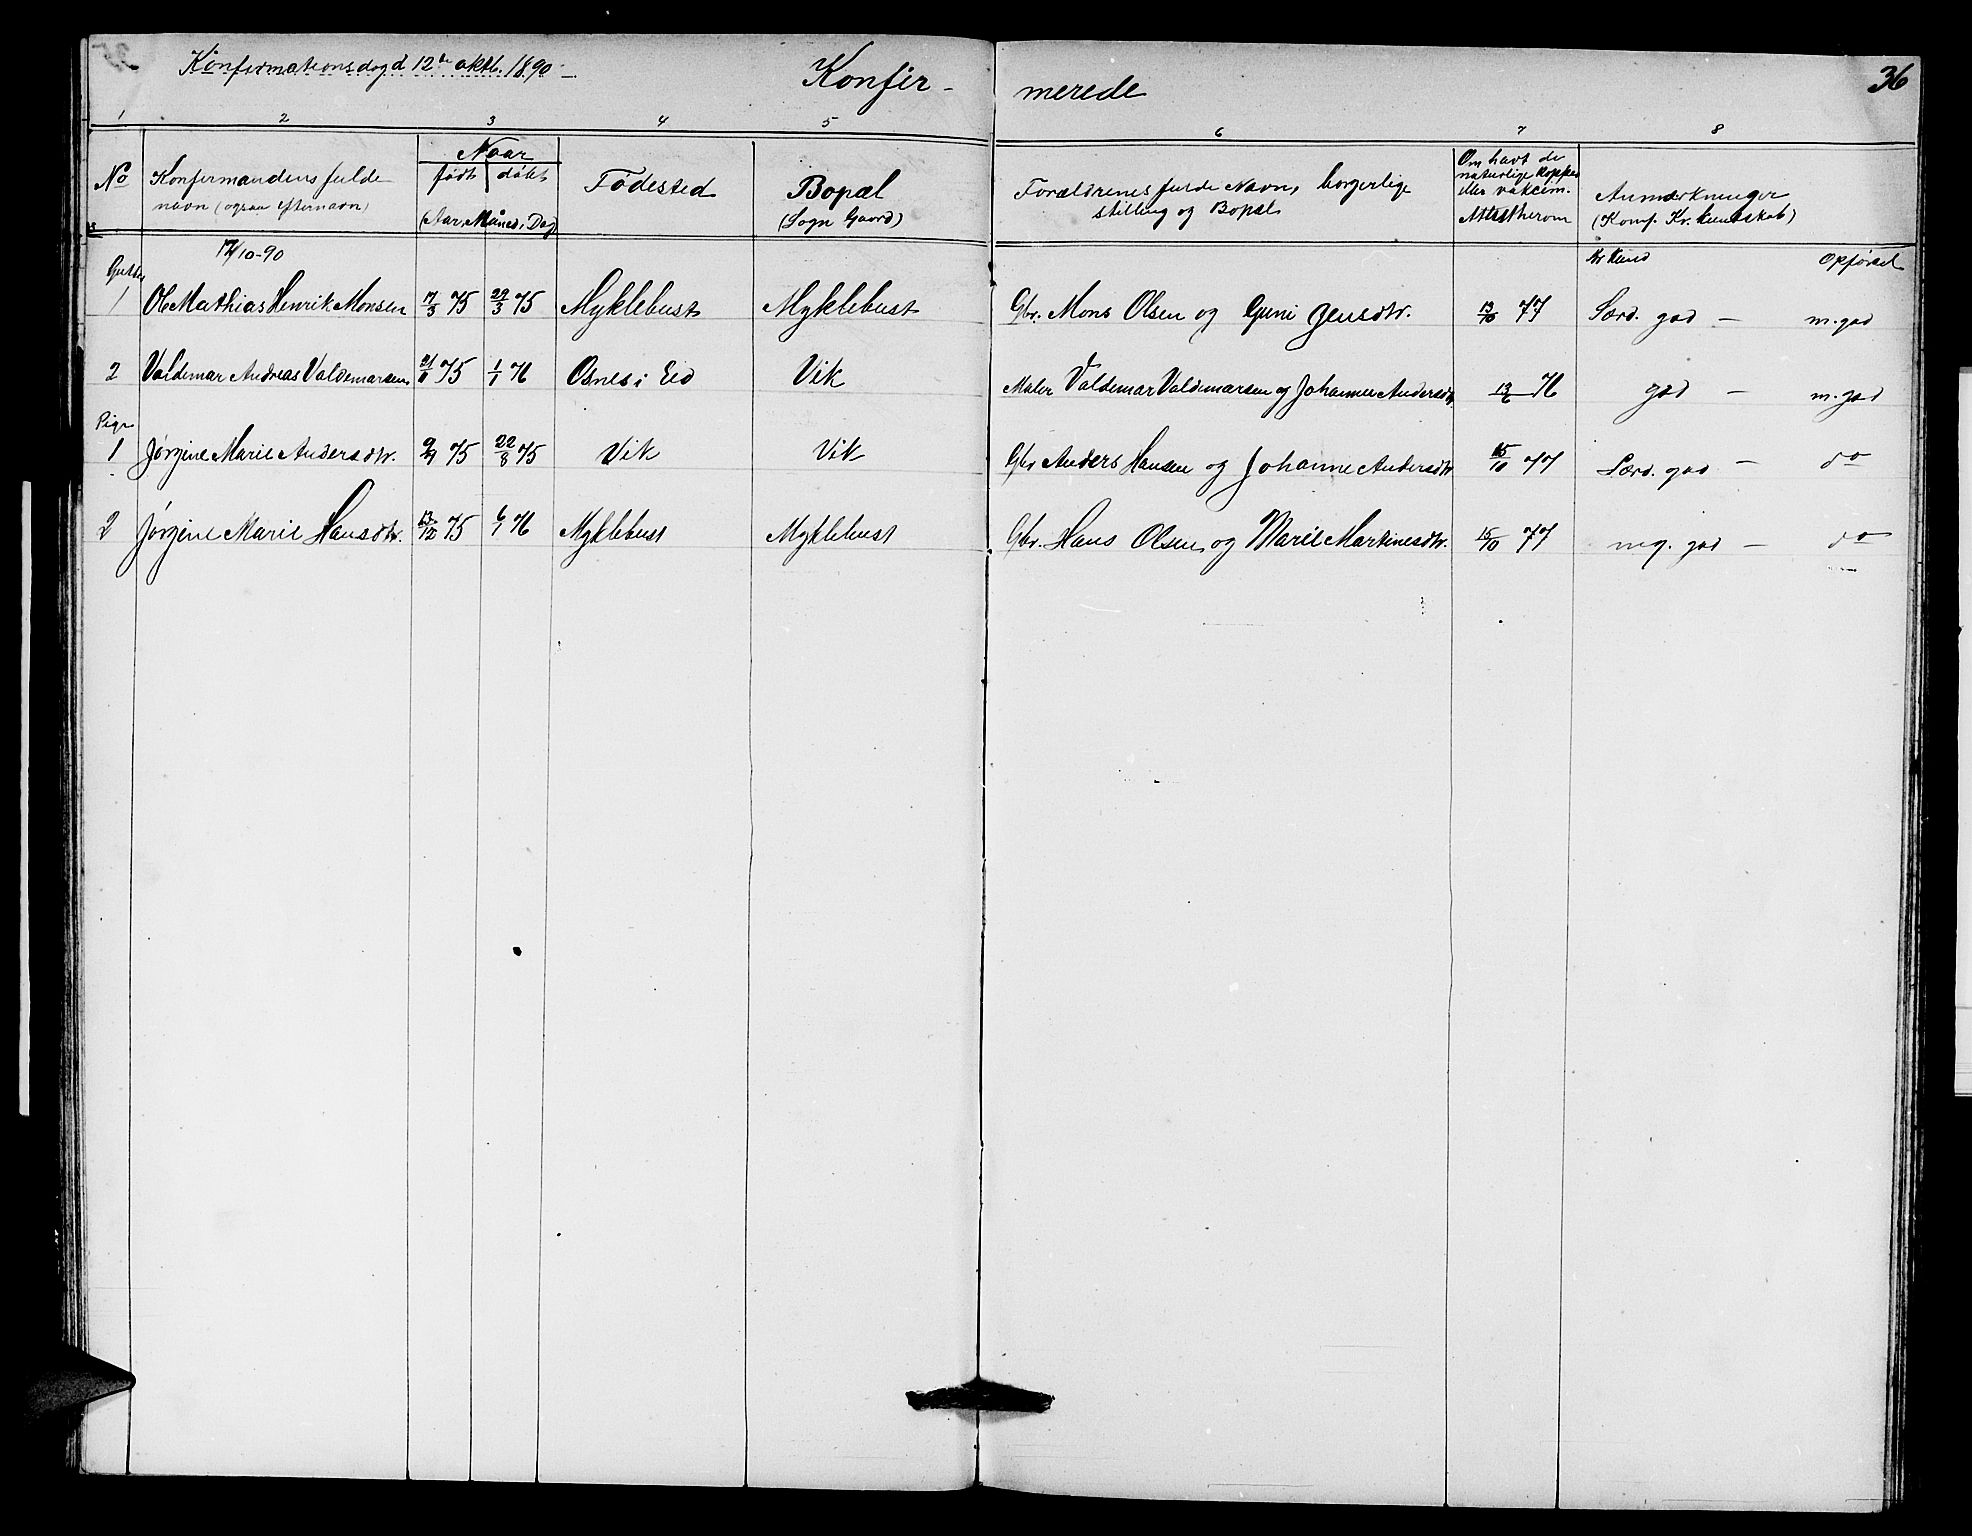 Konfirmationsdag d 12te oktb. 1890
Konfir- merede
36
1 2 3 4 5 6 7 8
No
Konfirmandens fulde
navn (ogsaa efternavn)
Naar
født døbt
(Aar, Måned, Dag)
Födested
Bopæl
(Sogn Gaard)
Forældrenes fulde Navn, borgerlige
stilling og Bopæl
Om havt de
naturlige kopper
eller vakcin.
Attest herom
Anmærkninger
(Konf. Kr. kundskab)
12/10-90
Kr Kund Opförsel
Gutter
1 Ole Mathias Henrik Monsen 17/3 75 29/3 75 Myklebust Myklebust Gbr. Mons Olsen og Guni Jensdtr. 77 Særd. god — m. god
2 Valdemar Andreas Valdemarsen 75 1/1 76 Osnes i Eid Vik Maler Valdemar Valdemarsen og Johanne Andersdtr 13/6 76 god — m. god
Piger
1 Jørgine Marie Andersdtr. 75 22/8 75 Vik Vik Gbr Anders Hansen og Johanne Andersdtr 15/10 77 Særd. god — do
2 Jørgine Marie Hansdtr. 13/12 75 6/1 76 Myklebust Myklebust Gbr. Hans Olsen og Marie Martinesdtr. 15/10 77 meg. god — do